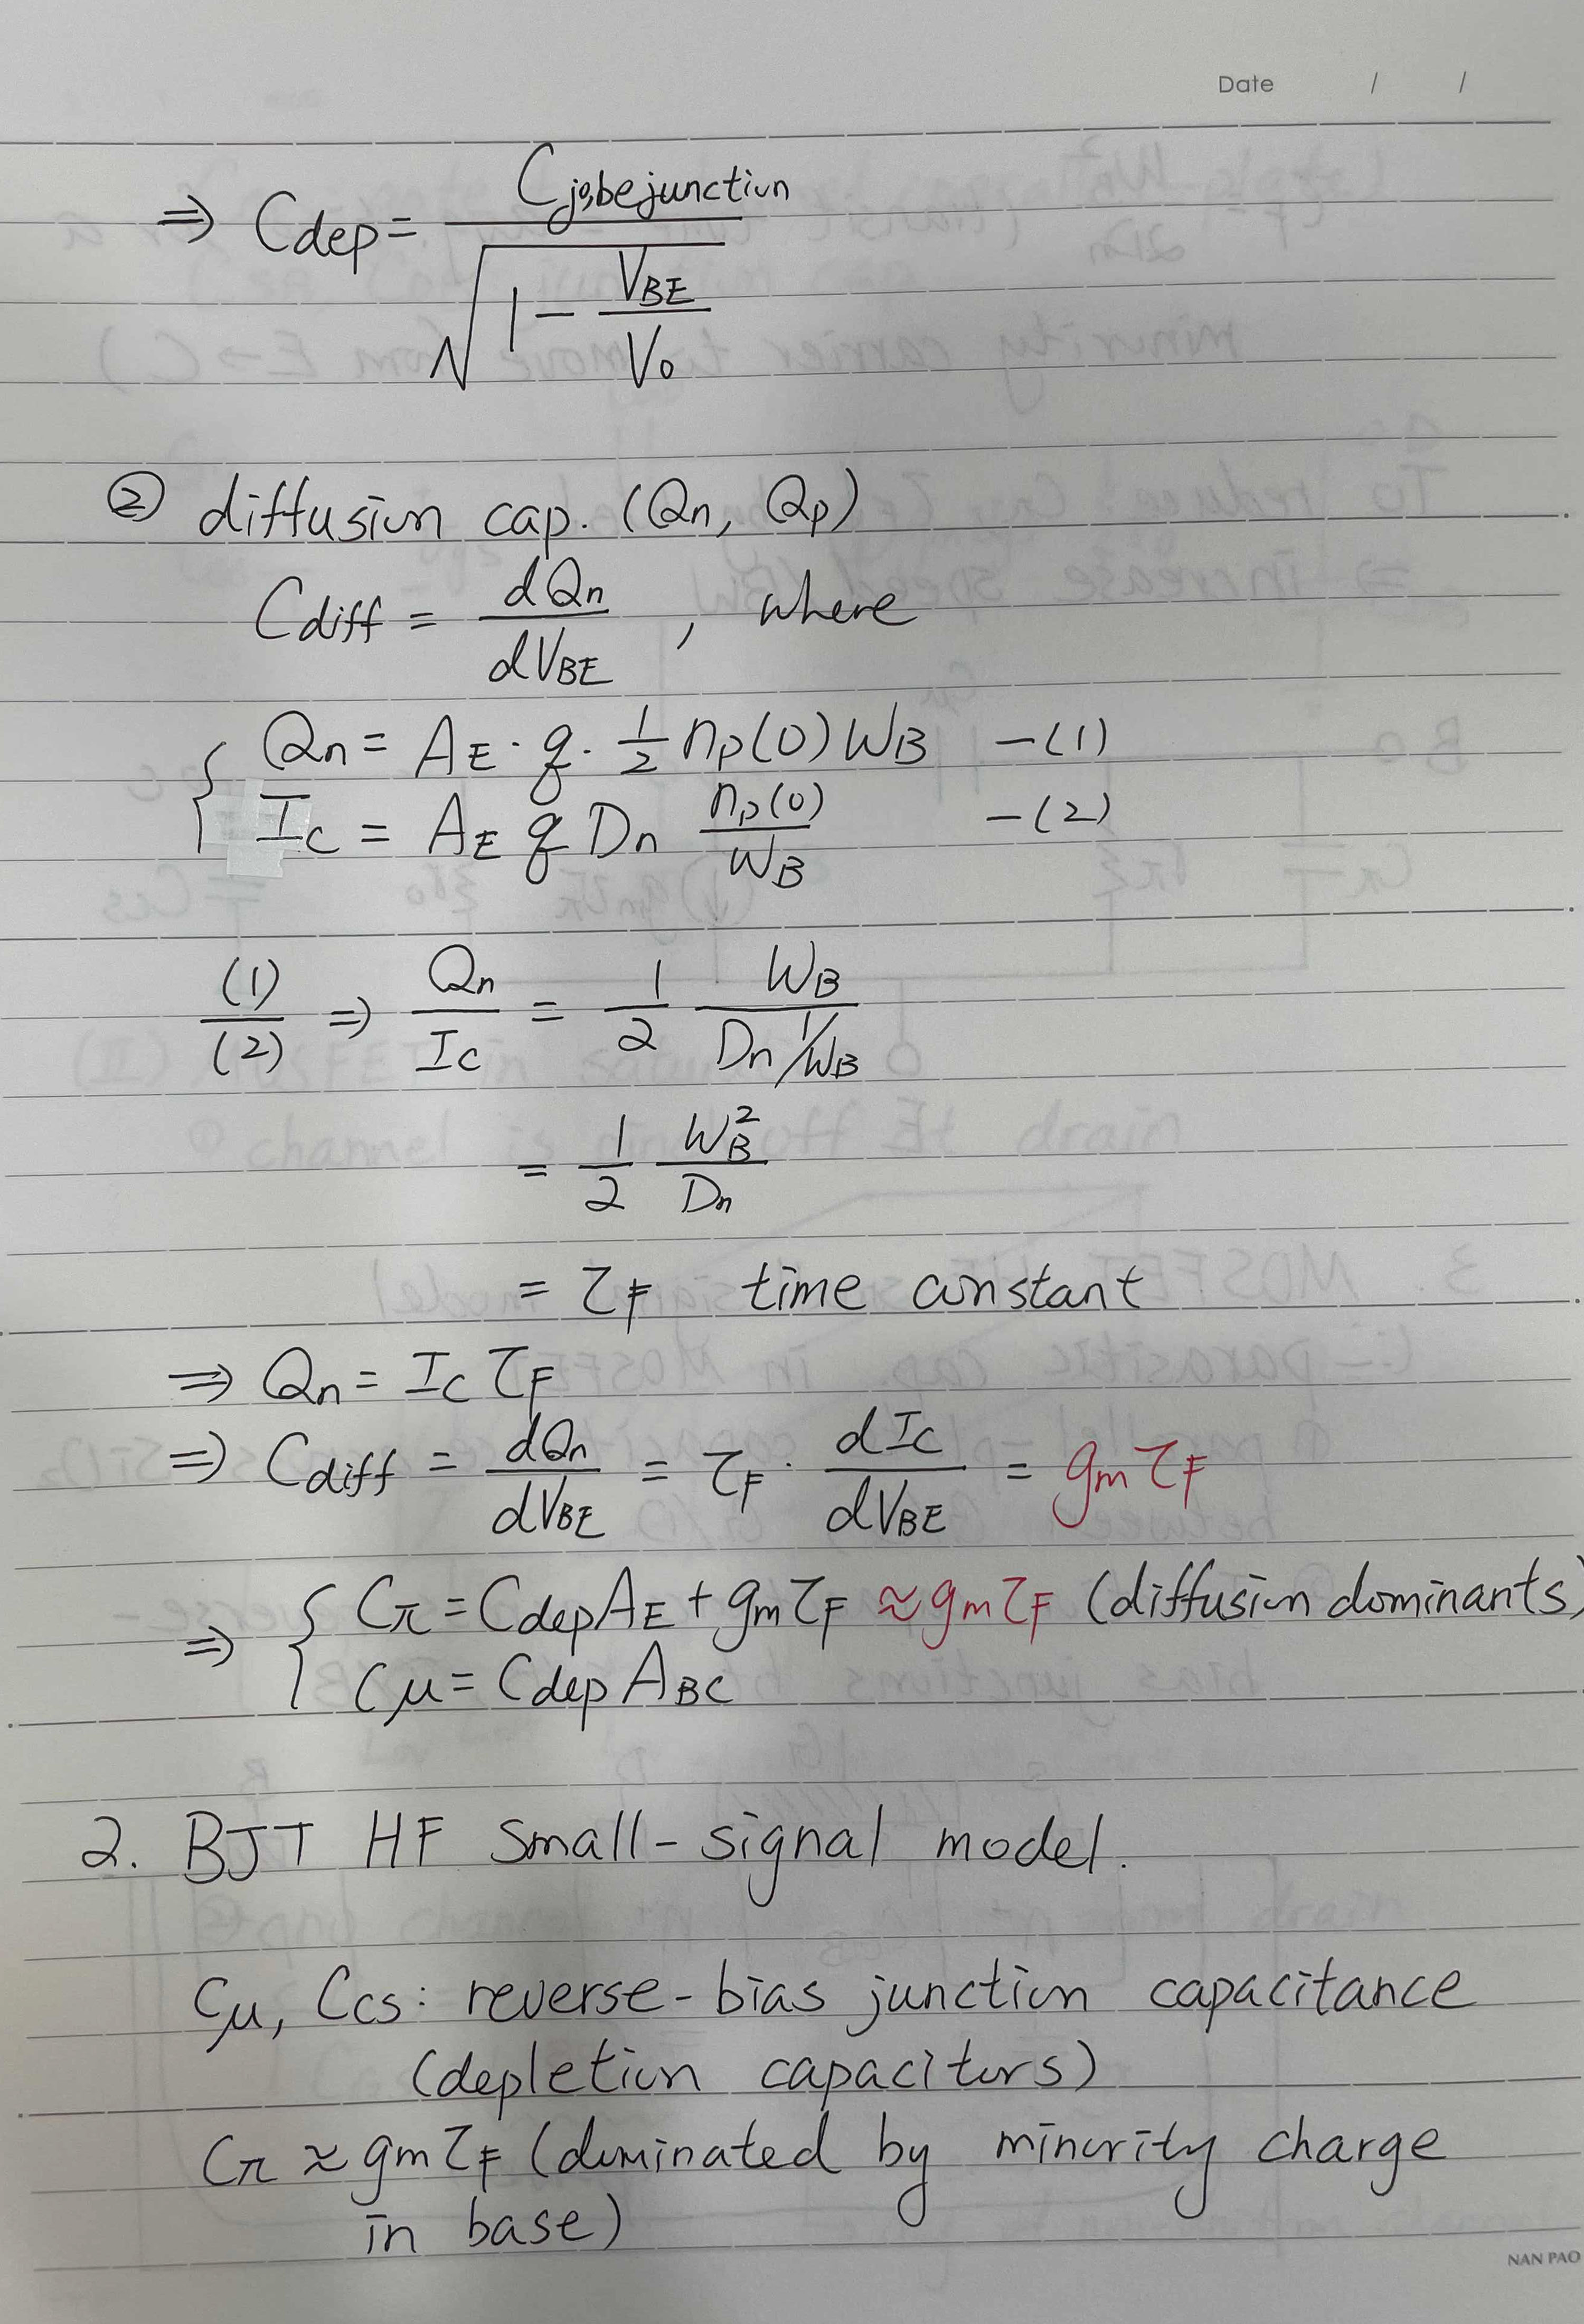 Date / /
⇒ Cdep = Cjo,be junction / √(1 - VBE/V0)
② diffusion cap. (Qn, Qp)
Cdiff = dQn/dVBE , where
Qn = AE · q · 1/2 np(0) WB -(1)
Ic = AE q Dn np(0)/WB -(2)
(1)/(2) ⇒ Qn/Ic = 1/2 WB/(Dn 1/WB)
= 1/2 WB²/Dn
= τF time constant
⇒ Qn = Ic τF
⇒ Cdiff = dQn/dVBE = τF · dIc/dVBE = gm τF
⇒ { Cπ = Cdep AE + gm τF ≈ gm τF (diffusion dominants)
Cμ = Cdep ABC
2. BJT HF small-signal model.
Cμ, Ccs: reverse-bias junction capacitance
(depletion capacitors)
Cπ ≈ gm τF (dominated by minority charge
in base)
NAN PAO